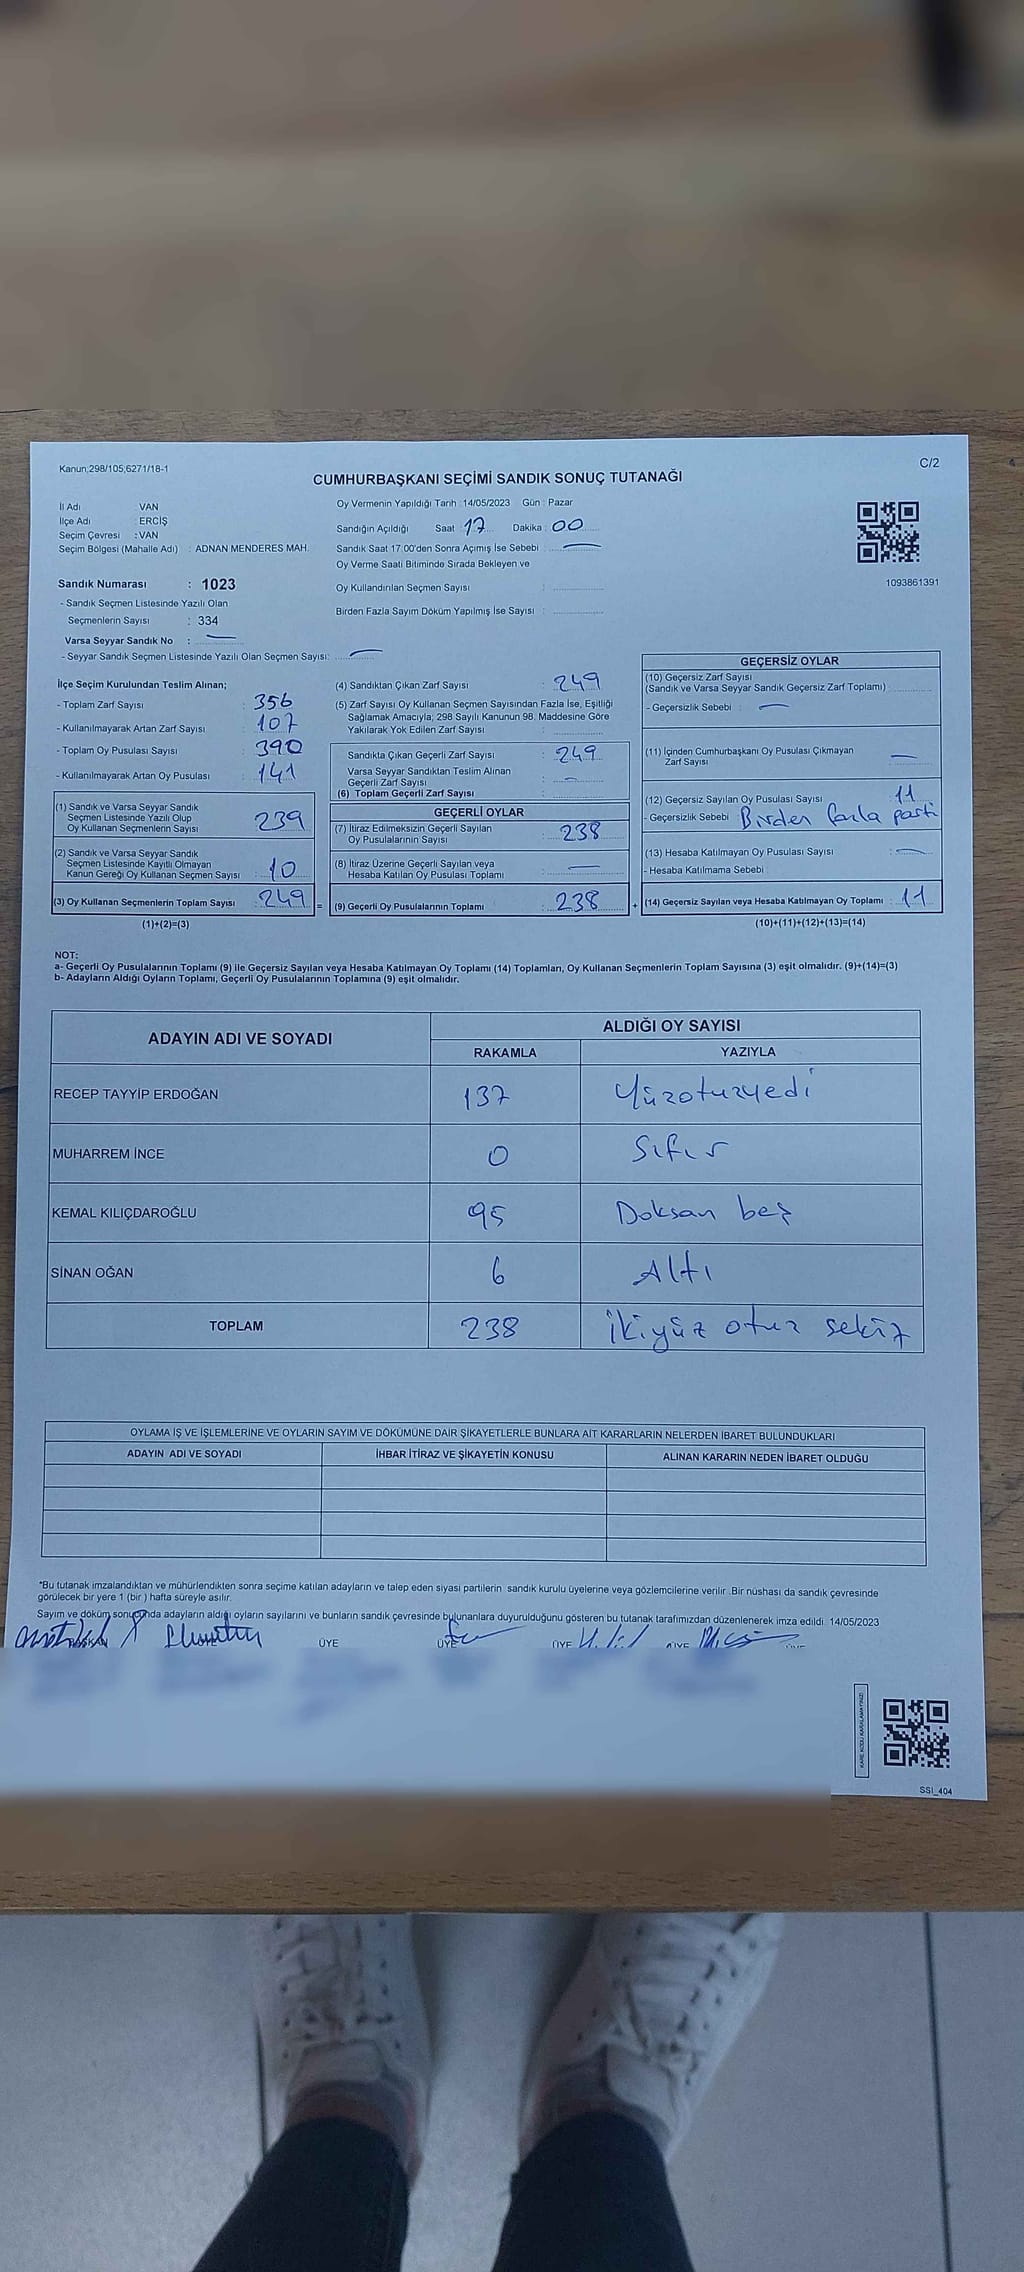 Kanun;298/105,6271/18-1
C/2
CUMHURBAŞKANI SEÇİMİ SANDIK SONUÇ TUTANAĞI
İl Adı VAN
İlçe Adı : ERCİŞ
Seçim Çevresi : VAN
Seçim Bölgesi (Mahalle Adı) : ADNAN MENDERES MAH.
Sandık Numarası : 1023
- Sandık Seçmen Listesinde Yazılı Olan
Seçmenlerin Sayısı : 334
Varsa Seyyar Sandık No :
- Seyyar Sandık Seçmen Listesinde Yazılı Olan Seçmen Sayısı:
Oy Vermenin Yapıldığı Tarih : 14/05/2023 Gün : Pazar
Sandığın Açıldığı Saat 17 Dakika : 00
Sandık Saat 17:00'den Sonra Açımış İse Sebebi :
Oy Verme Saati Bitiminde Sırada Bekleyen ve
Oy Kullandırılan Seçmen Sayısı :
Birden Fazla Sayım Döküm Yapılmış İse Sayısı :
1093861391
İlçe Seçim Kurulundan Teslim Alınan;
- Toplam Zarf Sayısı : 356
- Kullanılmayarak Artan Zarf Sayısı : 107
- Toplam Oy Pusulası Sayısı : 390
- Kullanılmayarak Artan Oy Pusulası : 141
(1) Sandık ve Varsa Seyyar Sandık
Seçmen Listesinde Yazılı Olup
Oy Kullanan Seçmenlerin Sayısı : 239
(2) Sandık ve Varsa Seyyar Sandık
Seçmen Listesinde Kayıtlı Olmayan
Kanun Gereği Oy Kullanan Seçmen Sayısı : 10
(3) Oy Kullanan Seçmenlerin Toplam Sayısı : 249 =
(1)+(2)=(3)
(4) Sandıktan Çıkan Zarf Sayısı : 249
(5) Zarf Sayısı Oy Kullanan Seçmen Sayısından Fazla İse, Eşitliği
Sağlamak Amacıyla; 298 Sayılı Kanunun 98. Maddesine Göre
Yakılarak Yok Edilen Zarf Sayısı :
Sandıkta Çıkan Geçerli Zarf Sayısı : 249
Varsa Seyyar Sandıktan Teslim Alınan
Geçerli Zarf Sayısı : -
(6) Toplam Geçerli Zarf Sayısı :
GEÇERLİ OYLAR
(7) İtiraz Edilmeksizin Geçerli Sayılan
Oy Pusulalarının Sayısı : 238
(8) İtiraz Üzerine Geçerli Sayılan veya
Hesaba Katılan Oy Pusulası Toplamı :
(9) Geçerli Oy Pusulalarının Toplamı : 238 +
GEÇERSİZ OYLAR
(10) Geçersiz Zarf Sayısı
(Sandık ve Varsa Seyyar Sandık Geçersiz Zarf Toplamı) :
- Geçersizlik Sebebi :
(11) İçinden Cumhurbaşkanı Oy Pusulası Çıkmayan
Zarf Sayısı :
(12) Geçersiz Sayılan Oy Pusulası Sayısı : 11
- Geçersizlik Sebebi : Birden fazla parti
(13) Hesaba Katılmayan Oy Pusulası Sayısı :
- Hesaba Katılmama Sebebi
(14) Geçersiz Sayılan veya Hesaba Katılmayan Oy Toplamı : 11
(10)+(11)+(12)+(13)=(14)
NOT:
a- Geçerli Oy Pusulalarının Toplamı (9) ile Geçersiz Sayılan veya Hesaba Katılmayan Oy Toplamı (14) Toplamları, Oy Kullanan Seçmenlerin Toplam Sayısına (3) eşit olmalıdır. (9)+(14)=(3)
b- Adayların Aldığı Oyların Toplamı, Geçerli Oy Pusulalarının Toplamına (9) eşit olmalıdır.
ADAYIN ADI VE SOYADI ALDIĞI OY SAYISI
RAKAMLA YAZIYLA
RECEP TAYYİP ERDOĞAN 137 Yüzotuzyedi
MUHARREM İNCE 0 Sıfır
KEMAL KILIÇDAROĞLU 95 Doksan beş
SİNAN OĞAN 6 Altı
TOPLAM 238 İkiyüz otuz sekiz
OYLAMA İŞ VE İŞLEMLERİNE VE OYLARIN SAYIM VE DÖKÜMÜNE DAİR ŞİKAYETLERLE BUNLARA AİT KARARLARIN NELERDEN İBARET BULUNDUKLARI
ADAYIN ADI VE SOYADI İHBAR İTİRAZ VE ŞİKAYETİN KONUSU ALINAN KARARIN NEDEN İBARET OLDUĞU
*Bu tutanak imzalandıktan ve mühürlendikten sonra seçime katılan adayların ve talep eden siyası partilerin sandık kurulu üyelerine veya gözlemcilerine verilir .Bir nüshası da sandık çevresinde
görülecek bir yere 1 (bir ) hafta süreyle asılır.
Sayım ve döküm sonucunda adayların aldığı oyların sayılarını ve bunların sandık çevresinde bulunanlara duyurulduğunu gösteren bu tutanak tarafımızdan düzenlenerek imza edildi. 14/05/2023
BAŞKAN ÜYE ÜYE ÜYE ÜYE
KARE KODU KARALAMAYINIZ!
SSI_404